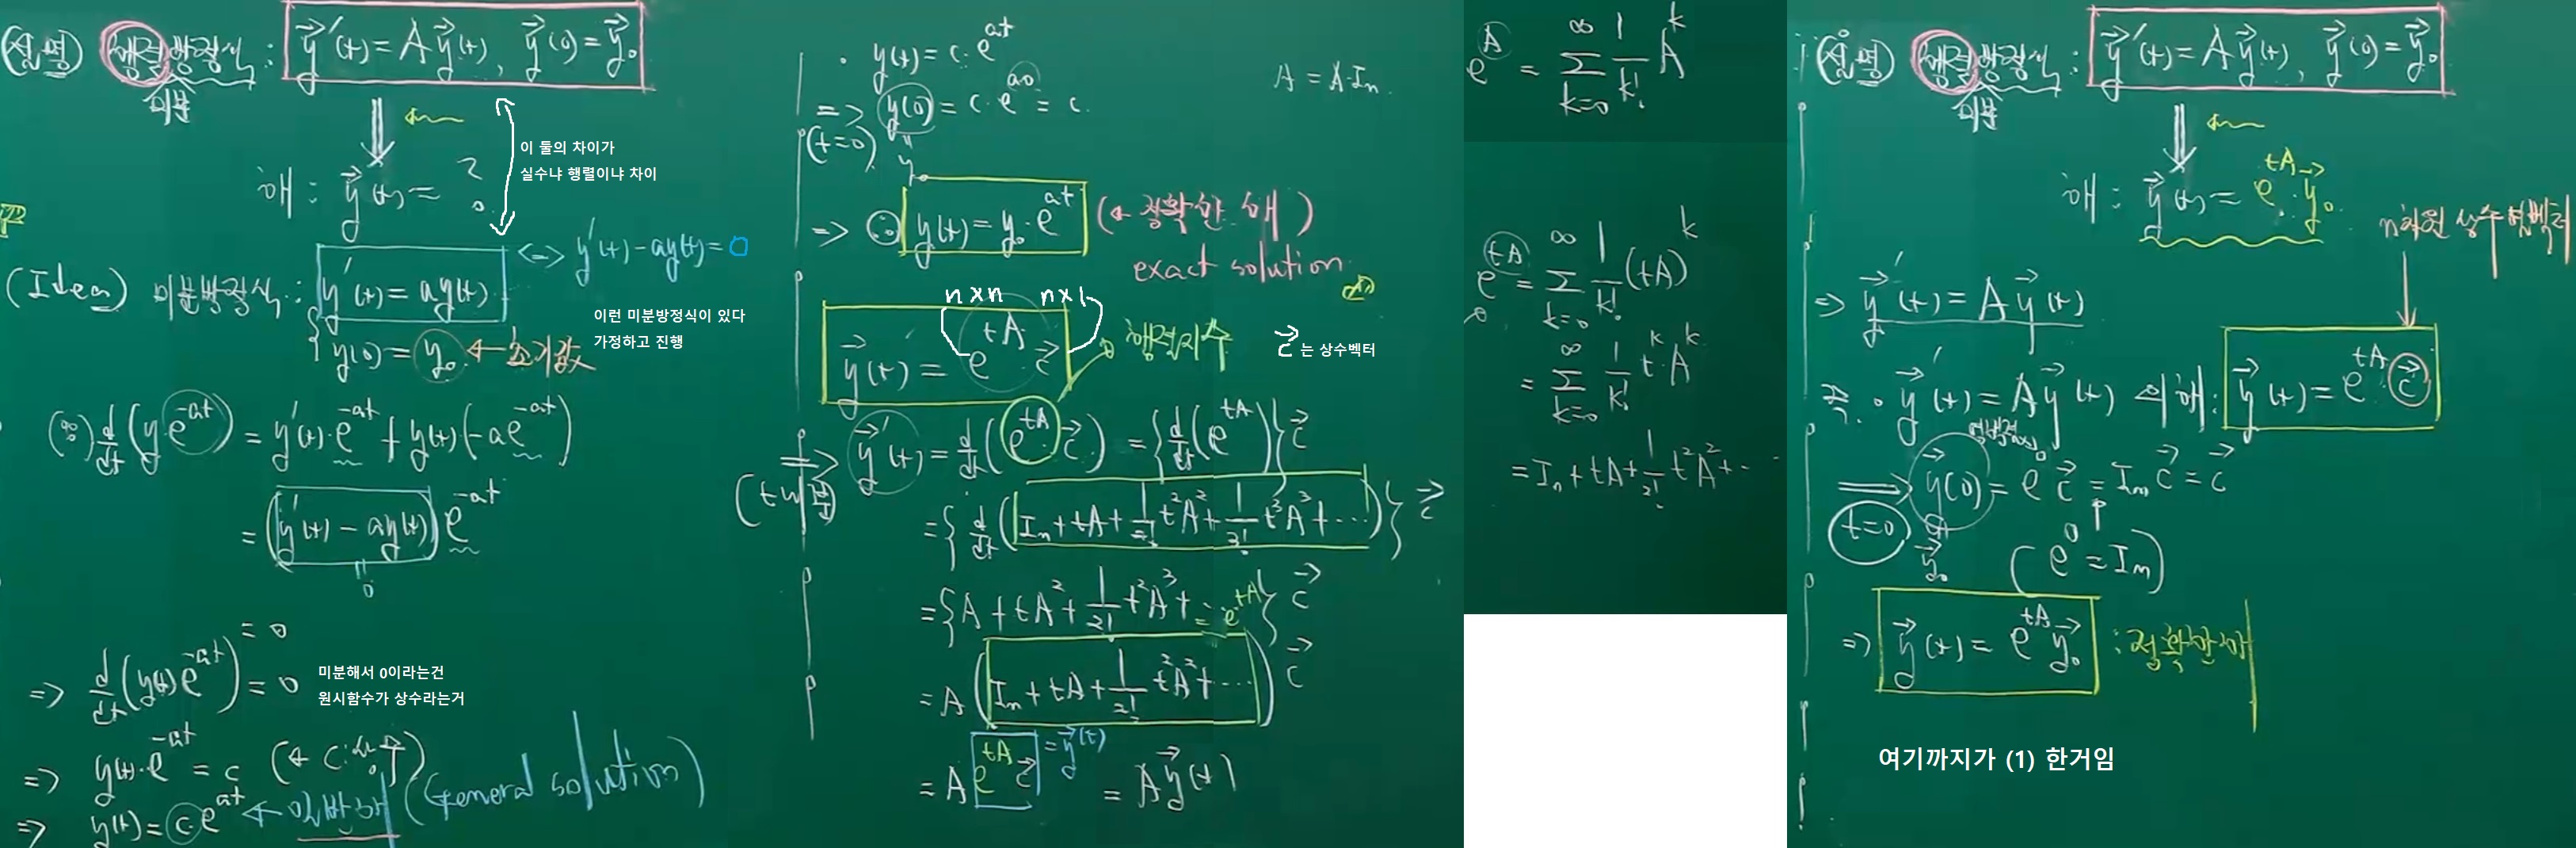 (설명) 행렬방정식 : y⃗′(t) = A y⃗(t), y⃗(0) = y⃗₀
미분
해 : y⃗(t) = ?
이 둘의 차이가
실수냐 행렬이냐 차이
(Idea) 미분방정식 : y′(t) = ay(t) <=> y′(t) - ay(t) = 0
y(0) = y₀ ← 초기값
이런 미분방정식이 있다
가정하고 진행
(∵) d/dt (y e^{-at}) = y′(t)·e^{-at} + y(t)·(-ae^{-at})
= (y′(t) - ay(t)) e^{-at}
= 0
= 0
=> d/dt (y(t) e^{-at}) = 0
미분해서 0이라는건
원시함수가 상수라는거
=> y(t)·e^{-at} = c (← c: 상수)
=> y(t) = c·e^{at} ← 일반해 (General solution)
· y(t) = c·e^{at}
A = A·Iₙ
=> (t=0) y(0) = c·e^{a·0} = c.
y₀
=> ∴ y(t) = y₀·e^{at} (← 정확한 해)
exact solution
n×n n×1
y⃗(t) = e^{tA} c⃗
행렬지수
c⃗ 는 상수벡터
=> (t에 대해) y⃗′(t) = d/dt (e^{tA} c⃗) = {d/dt (e^{tA})} c⃗
= {d/dt (Iₙ + tA + 1/2! t²A² + 1/3! t³A³ + ···)} c⃗
= {A + tA² + 1/2! t²A³ + ···} c⃗
= e^{tA}
= A (Iₙ + tA + 1/2! t²A² + ···) c⃗
= A e^{tA} c⃗ = A y⃗(t)
= y⃗(t)
e^A = ∑_{k=0}^{∞} 1/k! A^k
e^{tA} = ∑_{k=0}^{∞} 1/k! (tA)^k
= ∑_{k=0}^{∞} 1/k! t^k·A^k
= Iₙ + tA + 1/2! t²A² + ···
(설명) 행렬방정식 : y⃗′(t) = A y⃗(t), y⃗(0) = y⃗₀
미분
해 : y⃗(t) = e^{tA}·y⃗₀
n차원 상수열벡터
=> y⃗′(t) = A y⃗(t)
즉 · y⃗′(t) = A y⃗(t) 의 해: y⃗(t) = e^{tA}·c⃗
=> t=0 y⃗(0) = e⁰ c⃗ = Iₙ c⃗ = c⃗
y⃗₀
(e⁰ = Iₙ)
=> y⃗(t) = e^{tA} y⃗₀ : 정확한 해
여기까지가 (1) 한거임